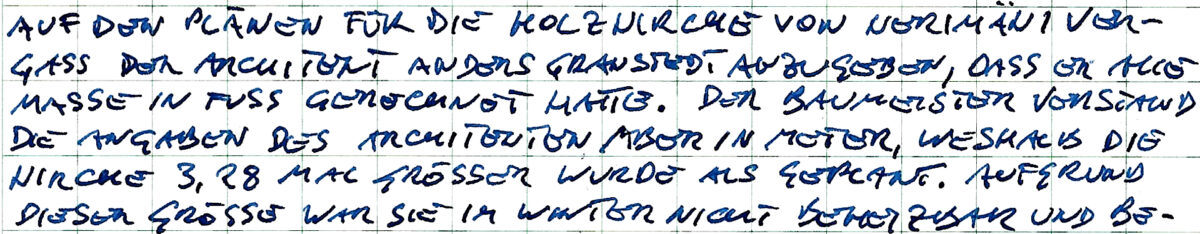 AUF DEN PLÄNEN FÜR DIE HOLZKIRCHE VON KERIMÄKI VER-
GASS DER ARCHITEKT ANDERS GRANSTEDT ANZUGEBEN, DASS ER ALLE
MASSE IN FUSS GERECHNET HATTE. DER BAUMEISTER VERSTAND
DIE ANGABEN DES ARCHITEKTEN ABER IN METER, WESHALB DIE
KIRCHE 3,28 MAL GRÖSSER WURDE ALS GEPLANT. AUFGRUND
DIESER GRÖSSE WAR SIE IM WINTER NICHT BEHEIZBAR UND BE-